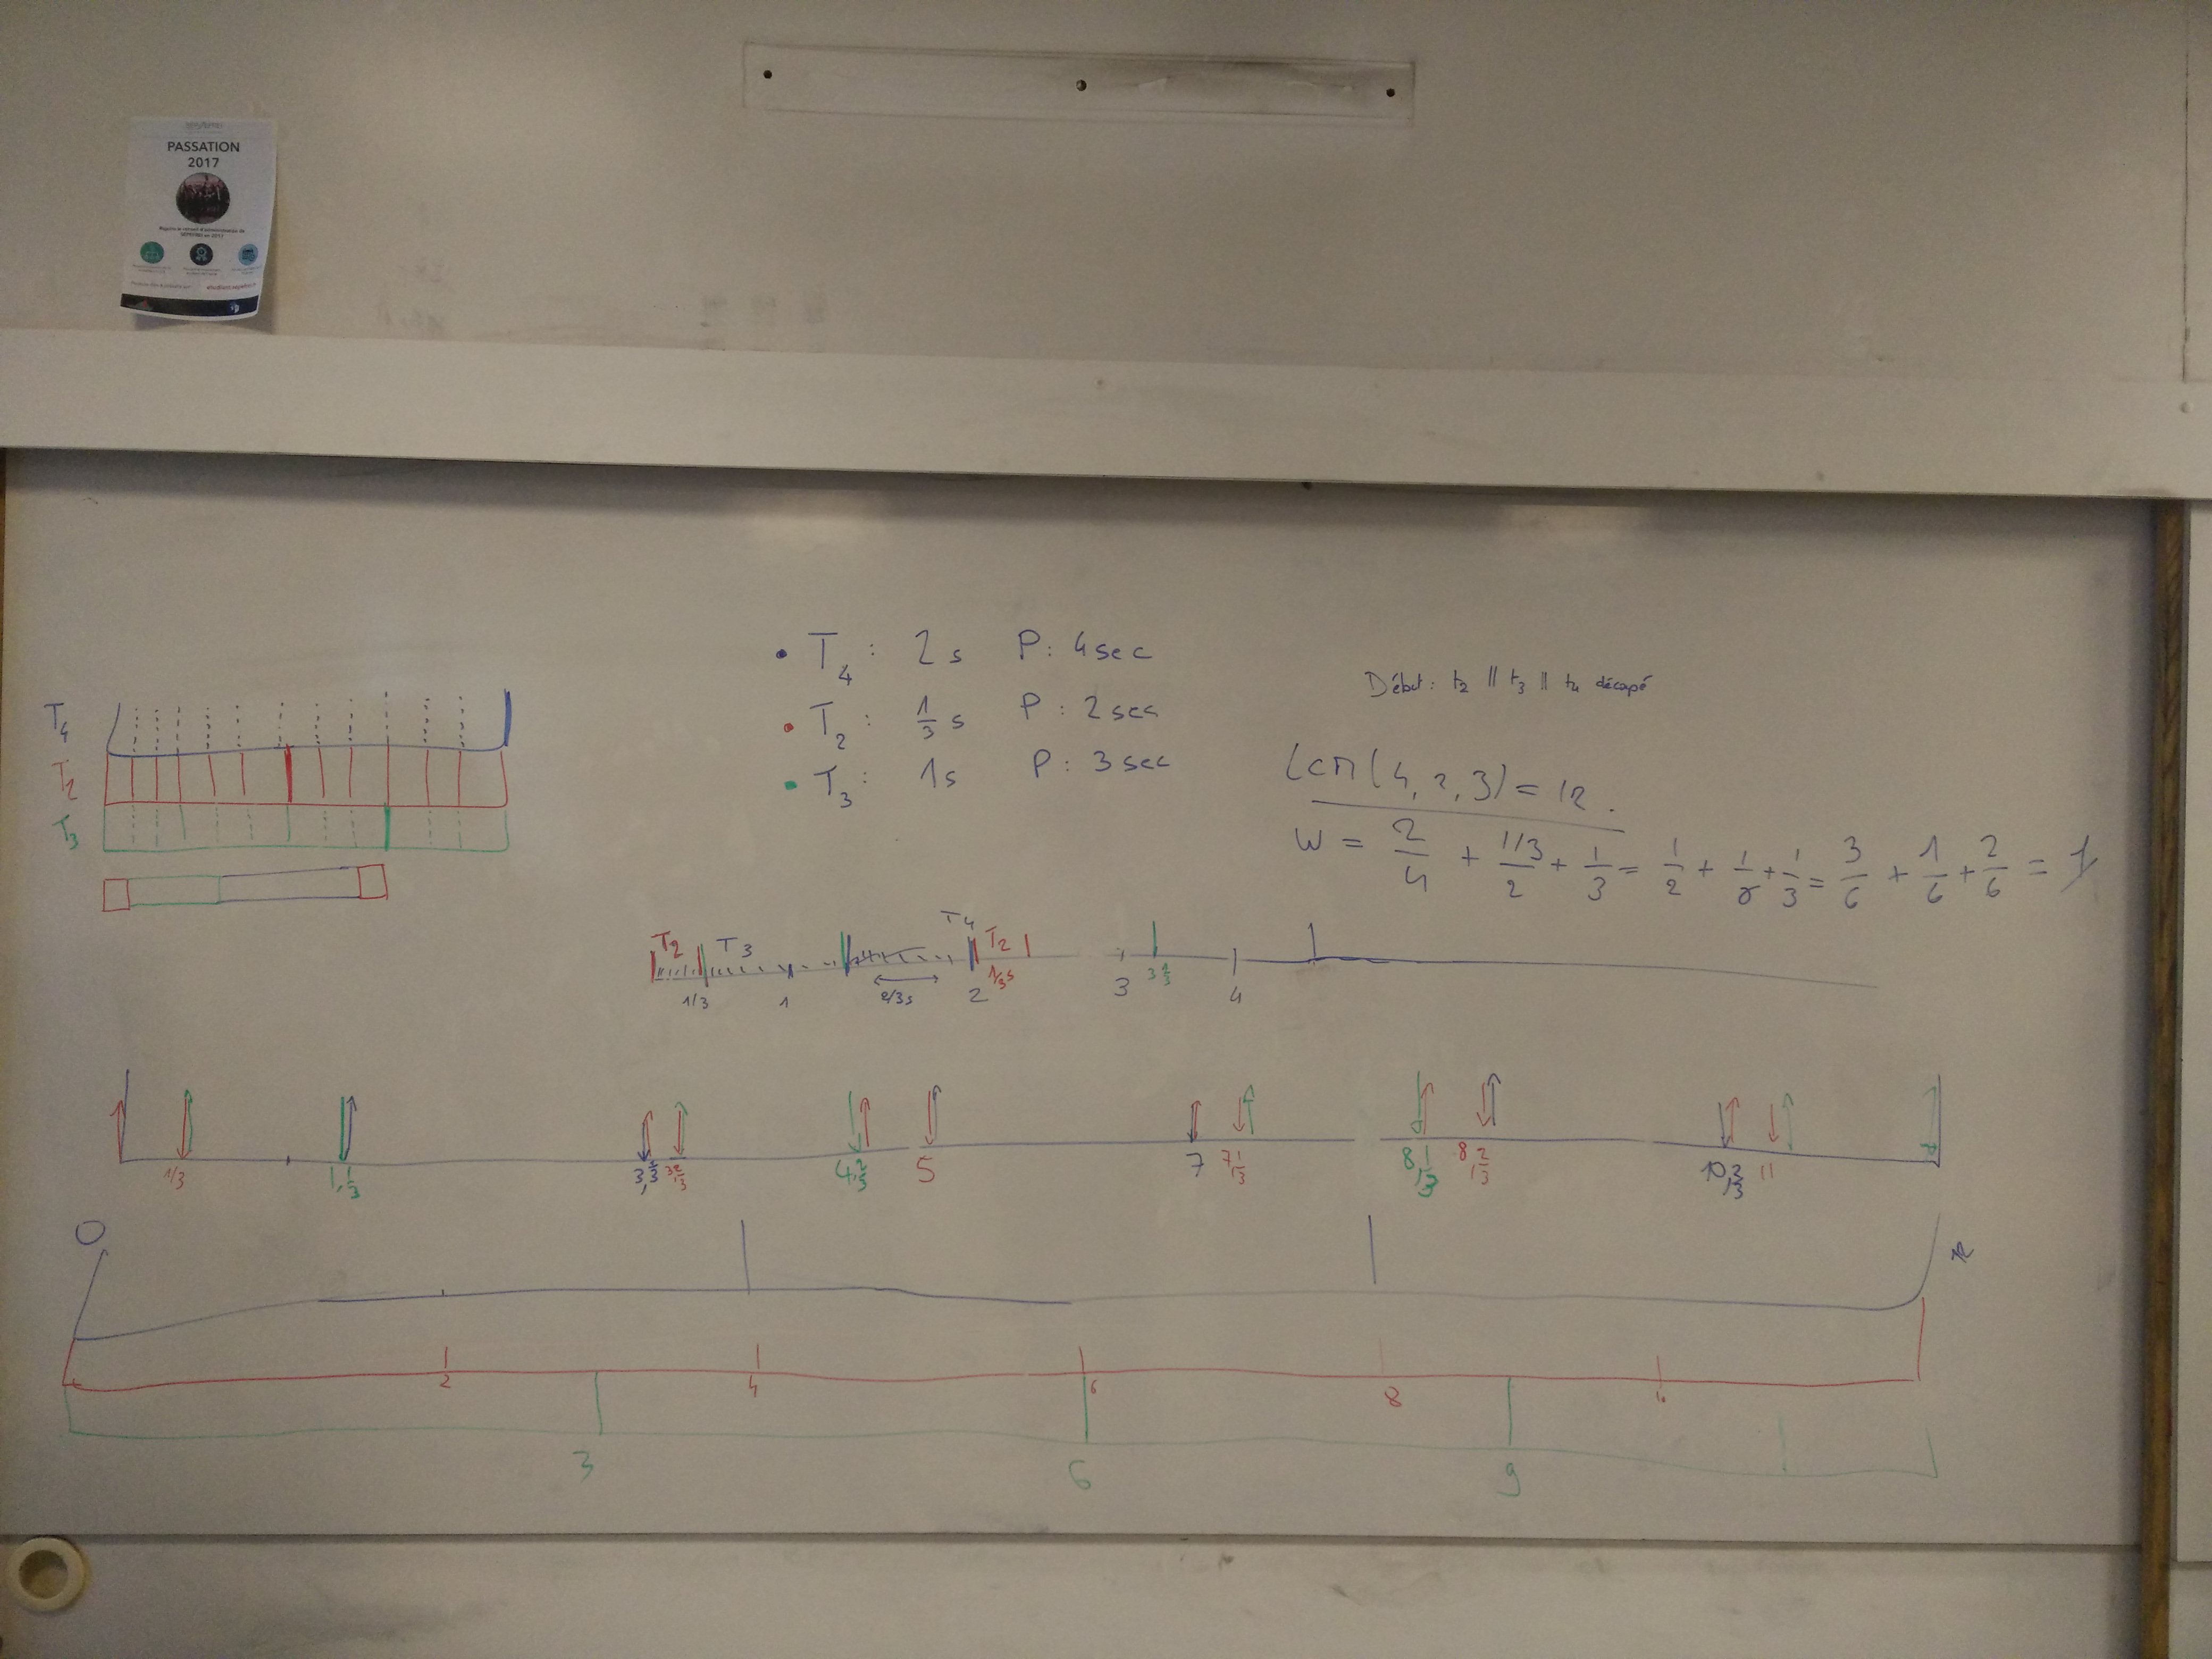 PASSATION
2017
T4 : 2 s P : 4 sec
T2 : 1/3 s P : 2 sec
T3 : 1 s P : 3 sec
Début : t2 || t3 || t4 décapé
LCM(4, 2, 3) = 12.
W = 2/4 + 1/3/2 + 1/3 = 1/2 + 1/8 + 1/3 = 3/6 + 1/6 + 2/6 = 1
T4
T2
T3
T2 T3 T4 T2
1/3 1 2/3s 2 1/3s 3 3 1/3 4
1/3 1,1/3 3,1/3 3,2/3 4,2/3 5 7 7,1/3 8,1/3 8,2/3 10,2/3 11
0 12
2 4 6 8 10
3 6 9